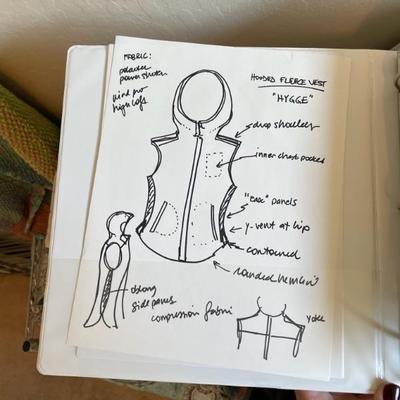 FABRIC:
polartec
power stretch
wind pro
high loft
HOODED FLEECE VEST
"HYGGE"
drop shoulder
inner chest pocket
"EASE" panels
y-vent at hip
contoured
rounded hemline
oblong
side panels
compression fabric
yoke